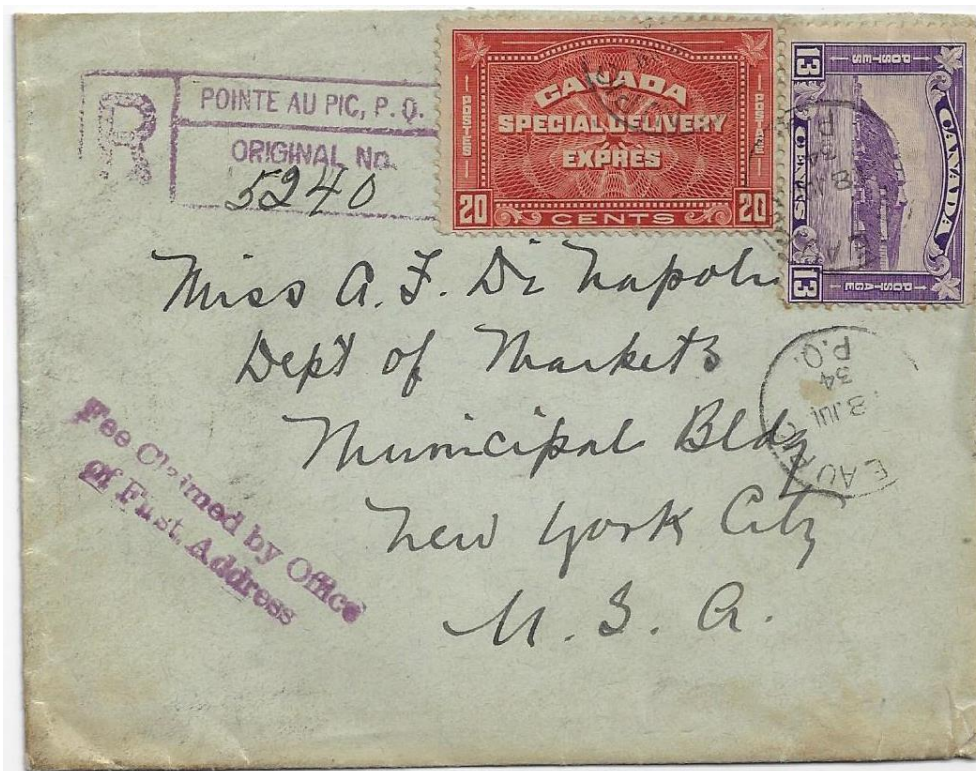 R
POINTE AU PIC, P. Q.
ORIGINAL No.
5240
CANADA
SPECIAL DELIVERY
EXPRES
POSTES
POSTAGE
20 CENTS 20
POSTES
CANADA
13 CENTS 13
POSTAGE
Miss A. F. Di Napoli
Dept of Markets
Municipal Bldg
New York City
U. S. A.
Fee Claimed by Office
of First Address
EAU PIC
JUL
34
P.Q.